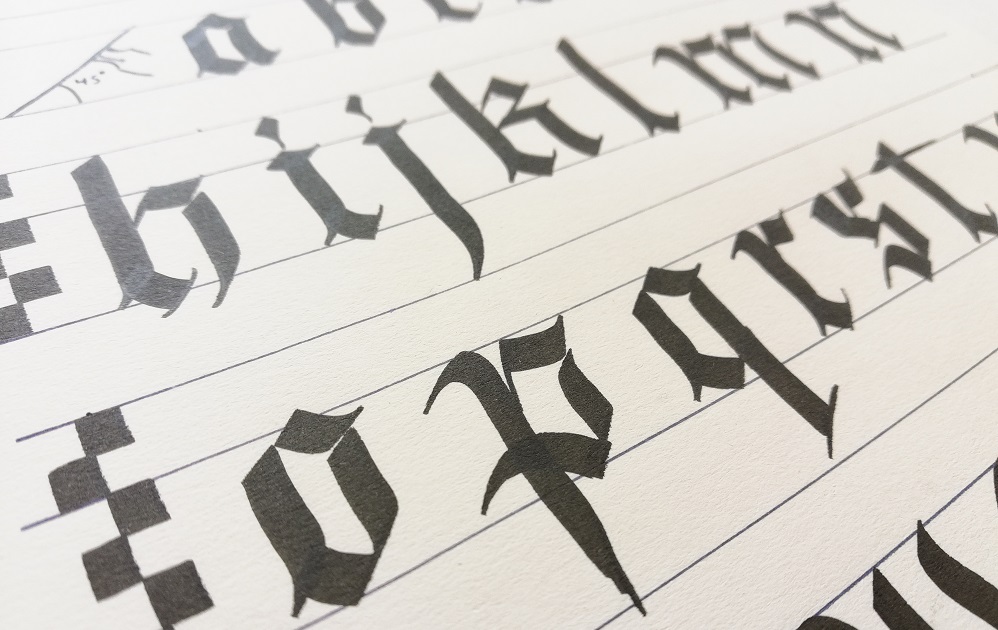 45° a b
h i j k l m n
o p q r s t